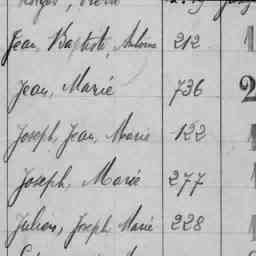 Jean, Baptiste, Antoine 212 1
Jean, Marié 736 2
Joseph, Jean, Marie 122
Joseph, Marie 277
Julien, Joseph Marié 228